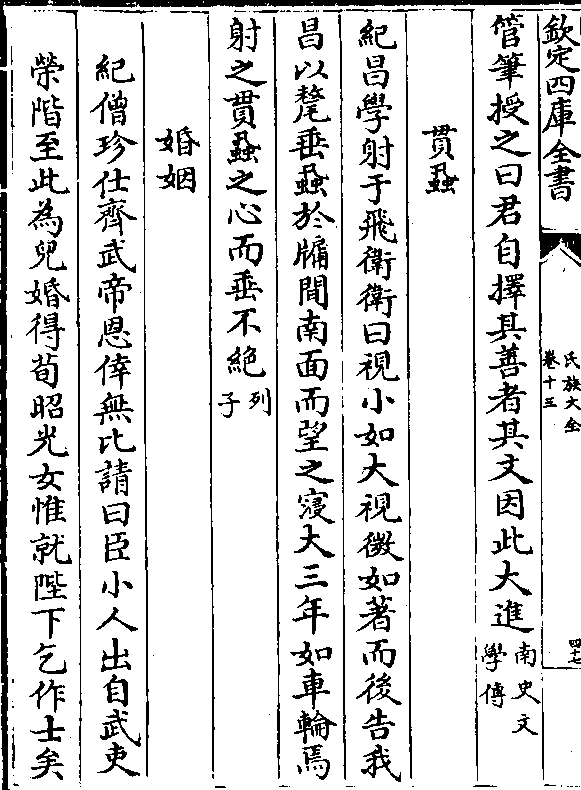 欽定四庫全書
氏族大全
卷十五
四七
管筆授之曰君自擇其善者其文因此大進南史文學傳
貫蝨
紀昌學射于飛衛衛曰視小如大視微如著而後告我
昌以氂垂蝨於牖間南面而望之寖大三年如車輪焉
射之貫蝨之心而垂不絶列子
婚姻
紀僧珍仕齊武帝恩倖無比請曰臣小人出自武吏
榮階至此為兒婚得荀昭光女惟就陛下乞作士矣